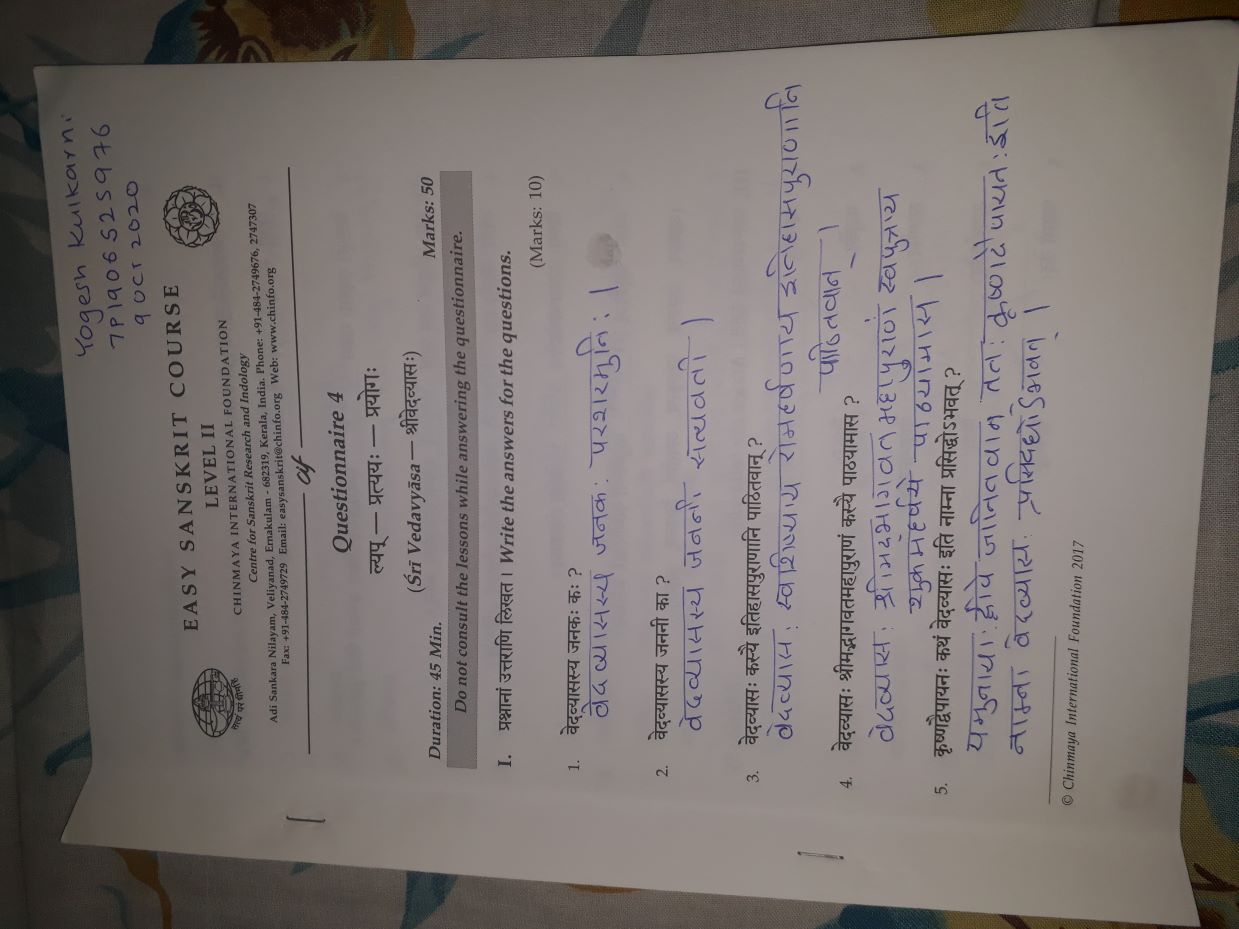 Yogesh Kulkarni
7P1906525976
9 OCT 2020
EASY SANSKRIT COURSE
LEVEL II
CHINMAYA INTERNATIONAL FOUNDATION
Centre for Sanskrit Research and Indology
Adi Sankara Nilayam, Veliyanad, Ernakulam - 682319, Kerala, India. Phone: +91-484-2749676, 2747307
Fax: +91-484-2749729 Email: easysanskrit@chinfo.org Web: www.chinfo.org
सत्यं परं धीमहि
cif
Questionnaire 4
ल्यप् — प्रत्ययः — प्रयोगः
(Śrī Vedavyāsa — श्रीवेदव्यासः)
Duration: 45 Min. Marks: 50
Do not consult the lessons while answering the questionnaire.
I. प्रश्नानां उत्तराणि लिखत । Write the answers for the questions.
(Marks: 10)
1. वेदव्यासस्य जनकः कः ?
वेदव्यासस्य जनकः परशरमुनिः ।
2. वेदव्यासस्य जननी का ?
वेदव्यासस्य जननी सत्यवती ।
3. वेदव्यासः कस्यै इतिहासपुराणानि पाठितवान् ?
वेदव्यासः स्वशिष्याय रोमहर्षणाय इतिहासपुराणानि
पाठितवान् ।
4. वेदव्यासः श्रीमद्भागवतमहापुराणं कस्यै पाठयामास ?
वेदव्यासः श्रीमदभागवतमहापुराणं स्वपुत्राय
शुकमहर्षये पाठयामास ।
5. कृष्णद्वैपायनः कथं वेदव्यासः इति नाम्ना प्रसिद्धोऽभवत् ?
यमुनायाः द्वीपे जानितवान् ततः कृष्णदैपायतः इति
नाम्ना वेदव्यासः प्रसिदधोऽभवत् ।
© Chinmaya International Foundation 2017